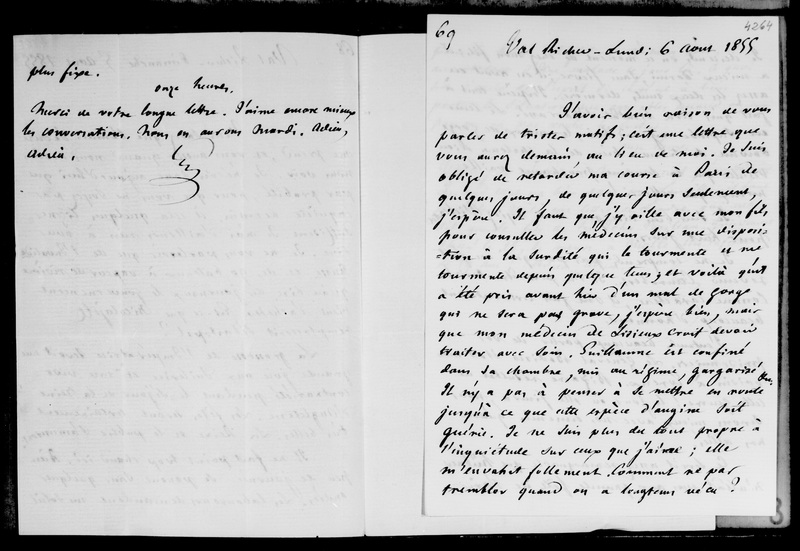 plus fixe.
onze heures.
Merci de votre longue lettre. J'aime encore mieux
les conversations. Nous en aurons Mardi. Adieu,
Adieu.
69
4264
Val Richer – Lundi 6 Aout 1855
J'avois bien raison de vous
parler de tristes motifs ; c'est une lettre que
vous aurez demain au lieu de moi. Je suis
obligé de retarder ma course à Paris de
quelques jours, de quelques jours seulement,
j'espère. Il faut que j'y aille avec mon fils
pour consulter les médecins sur une disposi-
=tion à la surdité qui le tourmente et me
tourmente depuis quelque tems ; et voilà qu'il
a été pris avant hier d'un mal de gorge
qui ne sera pas grave, j'espère bien, mais
que mon médecin de Lisieux croit devoir
traiter avec soin. Guillaume est confiné
dans sa chambre, mis au régime, gargarisé &c.
Il n'y a pas à penser à se mettre en route
jusqu'à ce que cette espèce d'angine soit
guérie. Je ne suis plus du tout propre à
l'inquiétude sur ceux que j'aime ; elle
m'envahit follement. Comment ne pas
trembler quand on a longtems vécu ?
3